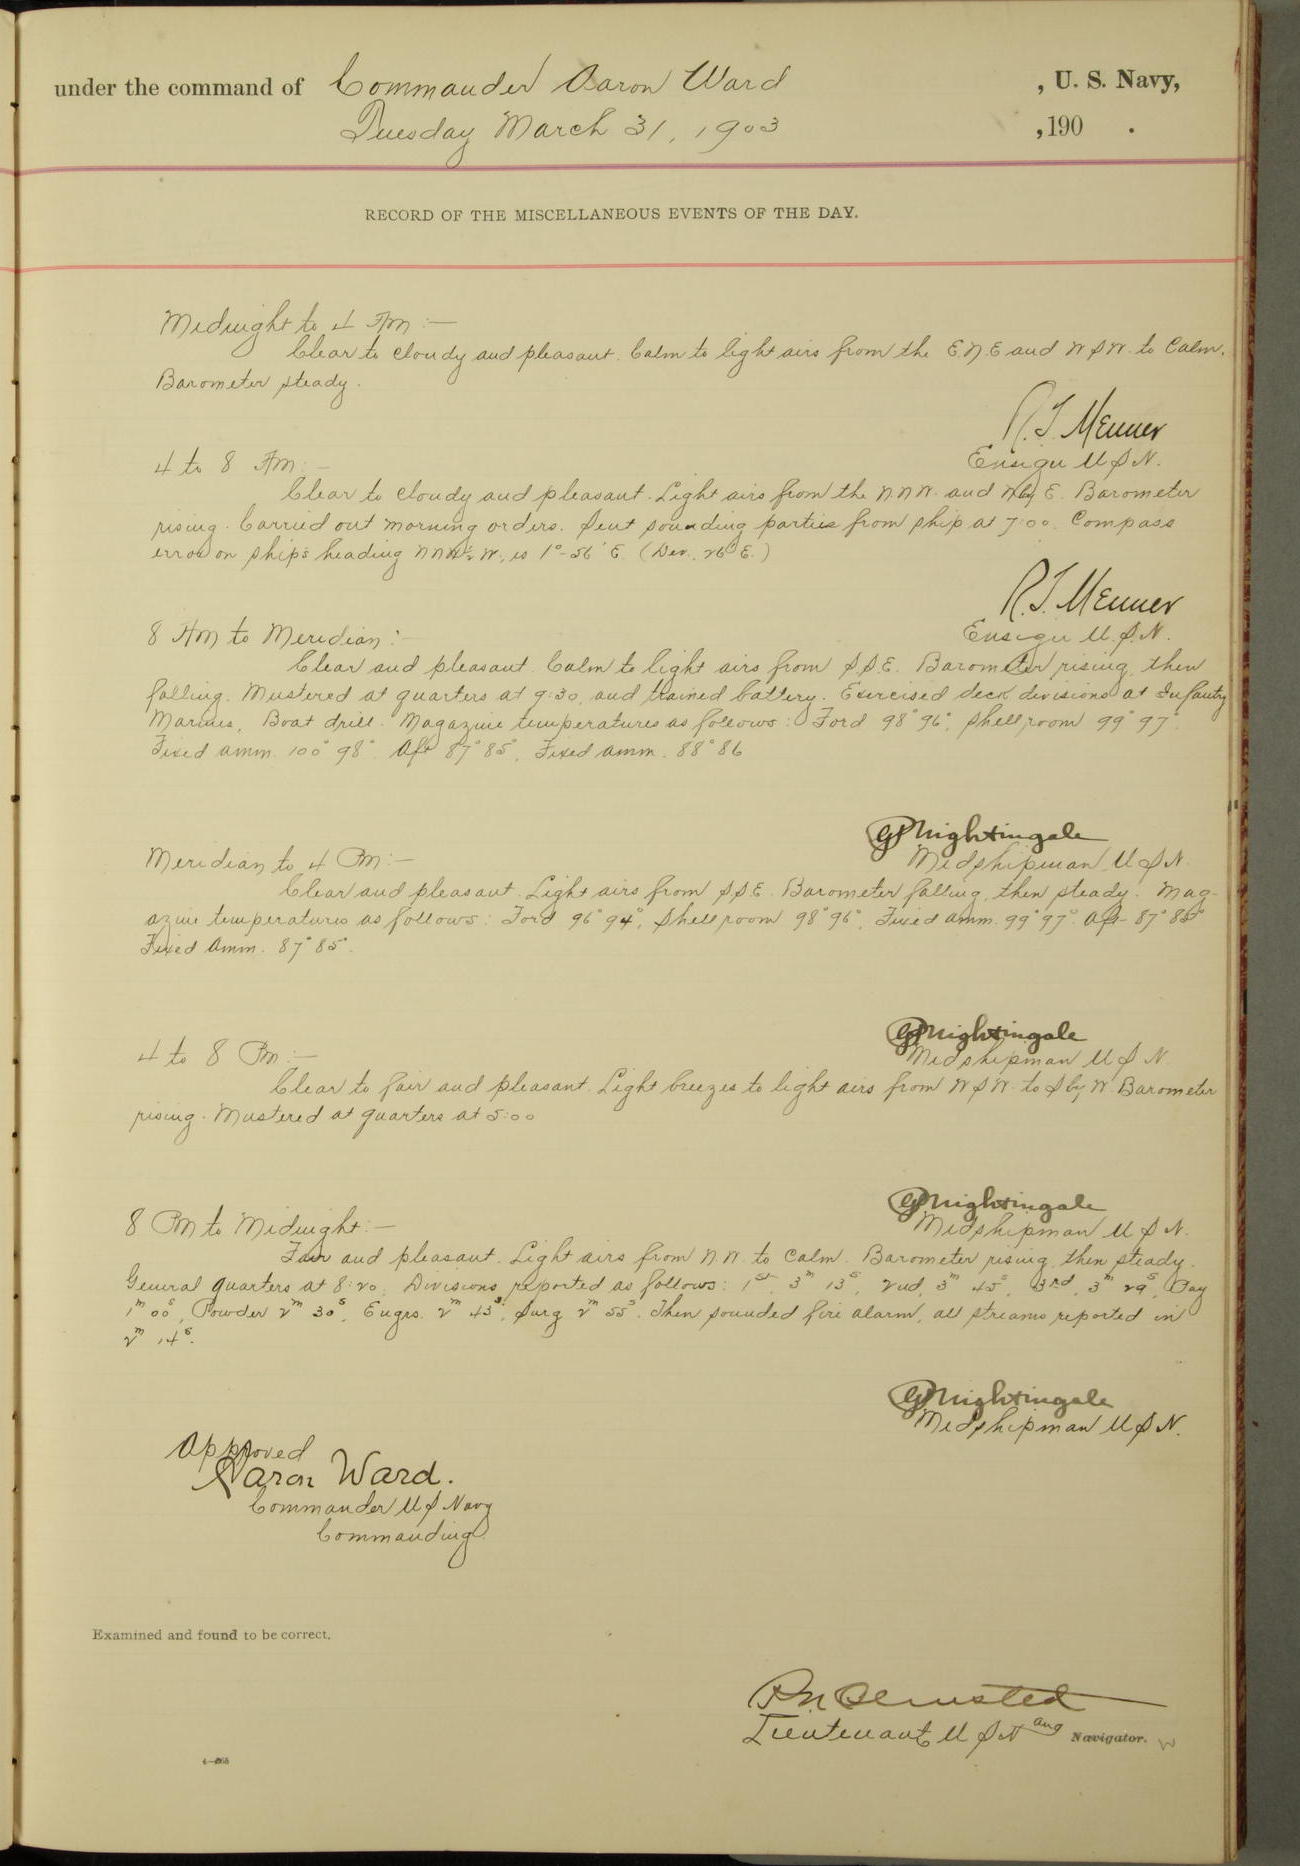 under the command of Commander Aaron Ward , U. S. Navy,
Tuesday March 31, 1903 , 190 .
RECORD OF THE MISCELLANEOUS EVENTS OF THE DAY.
Midnight to 4 AM:—
Clear to cloudy and pleasant. Calm to light airs from the E.N.E and W.S.W. to Calm.
Barometer steady.
R. T. Menner
Ensign U.S.N.
4 to 8 AM:—
Clear to cloudy and pleasant. Light airs from the N.N.W. and N by E. Barometer
rising. Carried out morning orders. Sent sounding parties from ship at 7:00. Compass
error on ship's heading N.N.W. ½ W., is 1°-56' E. (Dev. 26' E.)
R. T. Menner
Ensign U.S.N.
8 AM to Meridian:—
Clear and pleasant. Calm to light airs from S.S.E. Barometer rising, then
falling. Mustered at quarters at 9:30, and trained battery. Exercised deck divisions at Infantry
Marines, Boat drill. Magazine temperatures as follows: Ford 98° 96°, Shell room 99° 97°
Fixed amm. 100° 98°. Aft 87° 85°, Fixed amm. 88° 86
Nightingale
Midshipman U.S.N.
Meridian to 4 PM:—
Clear and pleasant. Light airs from S.S.E. Barometer falling, then steady. Mag-
azine temperatures as follows: Ford 96° 94°, Shell room 98° 96°, Fixed amm. 99° 97°. Aft 87° 85°
Fixed Amm. 87° 85°.
Nightingale
Midshipman U.S.N.
4 to 8 PM:—
Clear to fair and pleasant. Light breezes to light airs from W.S.W. to S by W. Barometer
rising. Mustered at quarters at 5:00
Nightingale
Midshipman U.S.N.
8 PM to Midnight:—
Fair and pleasant. Light airs from N.W. to Calm. Barometer rising, then steady.
General quarters at 8:20. Divisions reported as follows: 1st, 3m 13s, 2nd, 3m 45s, 3rd, 3m 29s, Pay
1m 00s, Powder 2m 30s, Engrs. 2m 43s, Surg 2m 55s. Then sounded fire alarm, all streams reported in
2m 14s.
Nightingale
Midshipman U.S.N.
Approved
Aaron Ward.
Commander U.S. Navy
Commanding
Examined and found to be correct.
P. N. Olmsted
Lieutenant U.S.N. and Navigator.